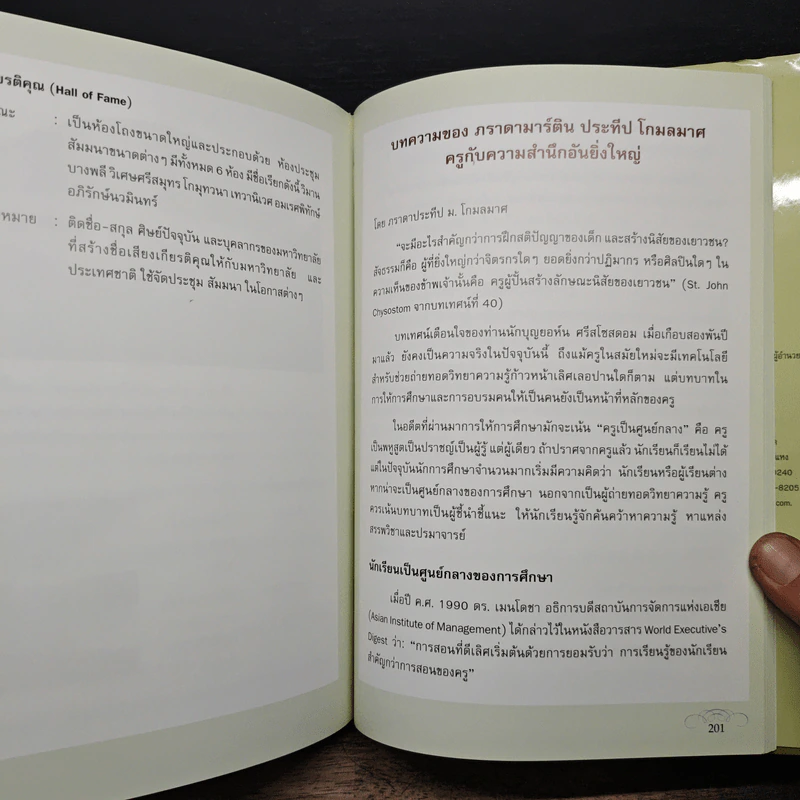 รติคุณ (Hall of Fame)
ณะ : เป็นห้องโถงขนาดใหญ่และประกอบด้วย ห้องประชุม
สัมมนาขนาดต่างๆ มีทั้งหมด 6 ห้อง มีชื่อเรียกดังนี้ วิมาน
บางพลี วิเศษศรีสมุทร โกมุทวนา เทวานิเวศ อมเรศพิทักษ์
อภิรักษ์นวมินทร์
หมาย : ติดชื่อ-สกุล ศิษย์ปัจจุบัน และบุคลากรของมหาวิทยาลัย
ที่สร้างชื่อเสียงเกียรติคุณให้กับมหาวิทยาลัย และ
ประเทศชาติ ใช้จัดประชุม สัมมนา ในโอกาสต่างๆ
บทความของ ภราดามาร์ติน ประทีป โกมลมาศ
ครูกับความสำนึกอันยิ่งใหญ่
โดย ภราดาประทีป ม. โกมลมาศ
"จะมีอะไรสำคัญกว่าการฝึกสติปัญญาของเด็ก และสร้างนิสัยของเยาวชน?
สัจธรรมก็คือ ผู้ที่ยิ่งใหญ่กว่าจิตรกรใดๆ ยอดยิ่งกว่าปฏิมากร หรือศิลปินใดๆ ใน
ความเห็นของข้าพเจ้านั้นคือ ครูผู้ปั้นสร้างลักษณะนิสัยของเยาวชน" (St. John
Chysostom จากบทเทศน์ที่ 40)
บทเทศน์เตือนใจของท่านนักบุญยอห์น ศรีสโซสดอม เมื่อเกือบสองพันปี
มาแล้ว ยังคงเป็นความจริงในปัจจุบันนี้ ถึงแม้ครูในสมัยใหม่จะมีเทคโนโลยี
สำหรับช่วยถ่ายทอดวิทยาความรู้ก้าวหน้าเลิศเลอปานใดก็ตาม แต่บทบาทใน
การให้การศึกษาและการอบรมคนให้เป็นคนยังเป็นหน้าที่หลักของครู
ในอดีตที่ผ่านมาการให้การศึกษามักจะเน้น "ครูเป็นศูนย์กลาง" คือ ครู
เป็นพหูสูตเป็นปราชญ์เป็นผู้รู้ แต่ผู้เดียว ถ้าปราศจากครูแล้ว นักเรียนก็เรียนไม่ได้
แต่ในปัจจุบันนักการศึกษาจำนวนมากเริ่มมีความคิดว่า นักเรียนหรือผู้เรียนต่าง
หากน่าจะเป็นศูนย์กลางของการศึกษา นอกจากเป็นผู้ถ่ายทอดวิทยาความรู้ ครู
ควรเน้นบทบาทเป็นผู้ชี้นำชี้แนะ ให้นักเรียนรู้จักค้นคว้าหาความรู้ หาแหล่ง
สรรพวิชาและปรมาจารย์
นักเรียนเป็นศูนย์กลางของการศึกษา
เมื่อปี ค.ศ. 1990 ดร. เมนโดซา อธิการบดีสถาบันการจัดการแห่งเอเชีย
(Asian Institute of Management) ได้กล่าวไว้ในหนังสือวารสาร World Executive's
Digest ว่า: "การสอนที่ดีเลิศเริ่มต้นด้วยการยอมรับว่า การเรียนรู้ของนักเรียน
สำคัญกว่าการสอนของครู"
201
ผู้อำนวย
แหง
0240
-8205
com.